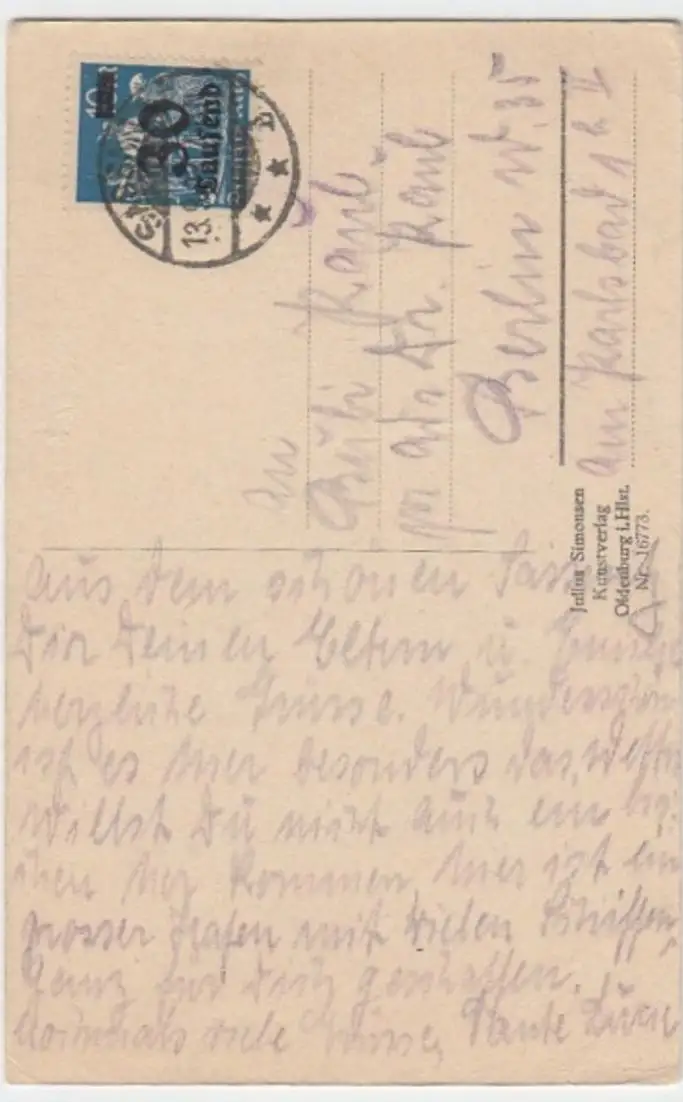 30
Tausend
13.
An
Bubi Raub
pr adr Dr. Raub
Berlin W. 35
am Karlsbad 1 a II
Julius Simonsen
Kunstverlag
Oldenburg i. Hlst.
Nr. 16773.
Aus dem schönen
Dir Deinen Eltern u.
herzliche Grüsse. Wunderschön
ist es hier besonders das Wetter
Willst Du nicht auch ein bis-
chen her kommen, hier ist ein
grosser Hafen mit vielen Schiffen,
Ganz für Dich geschaffen.
Nochmals viele Grüsse, Tante